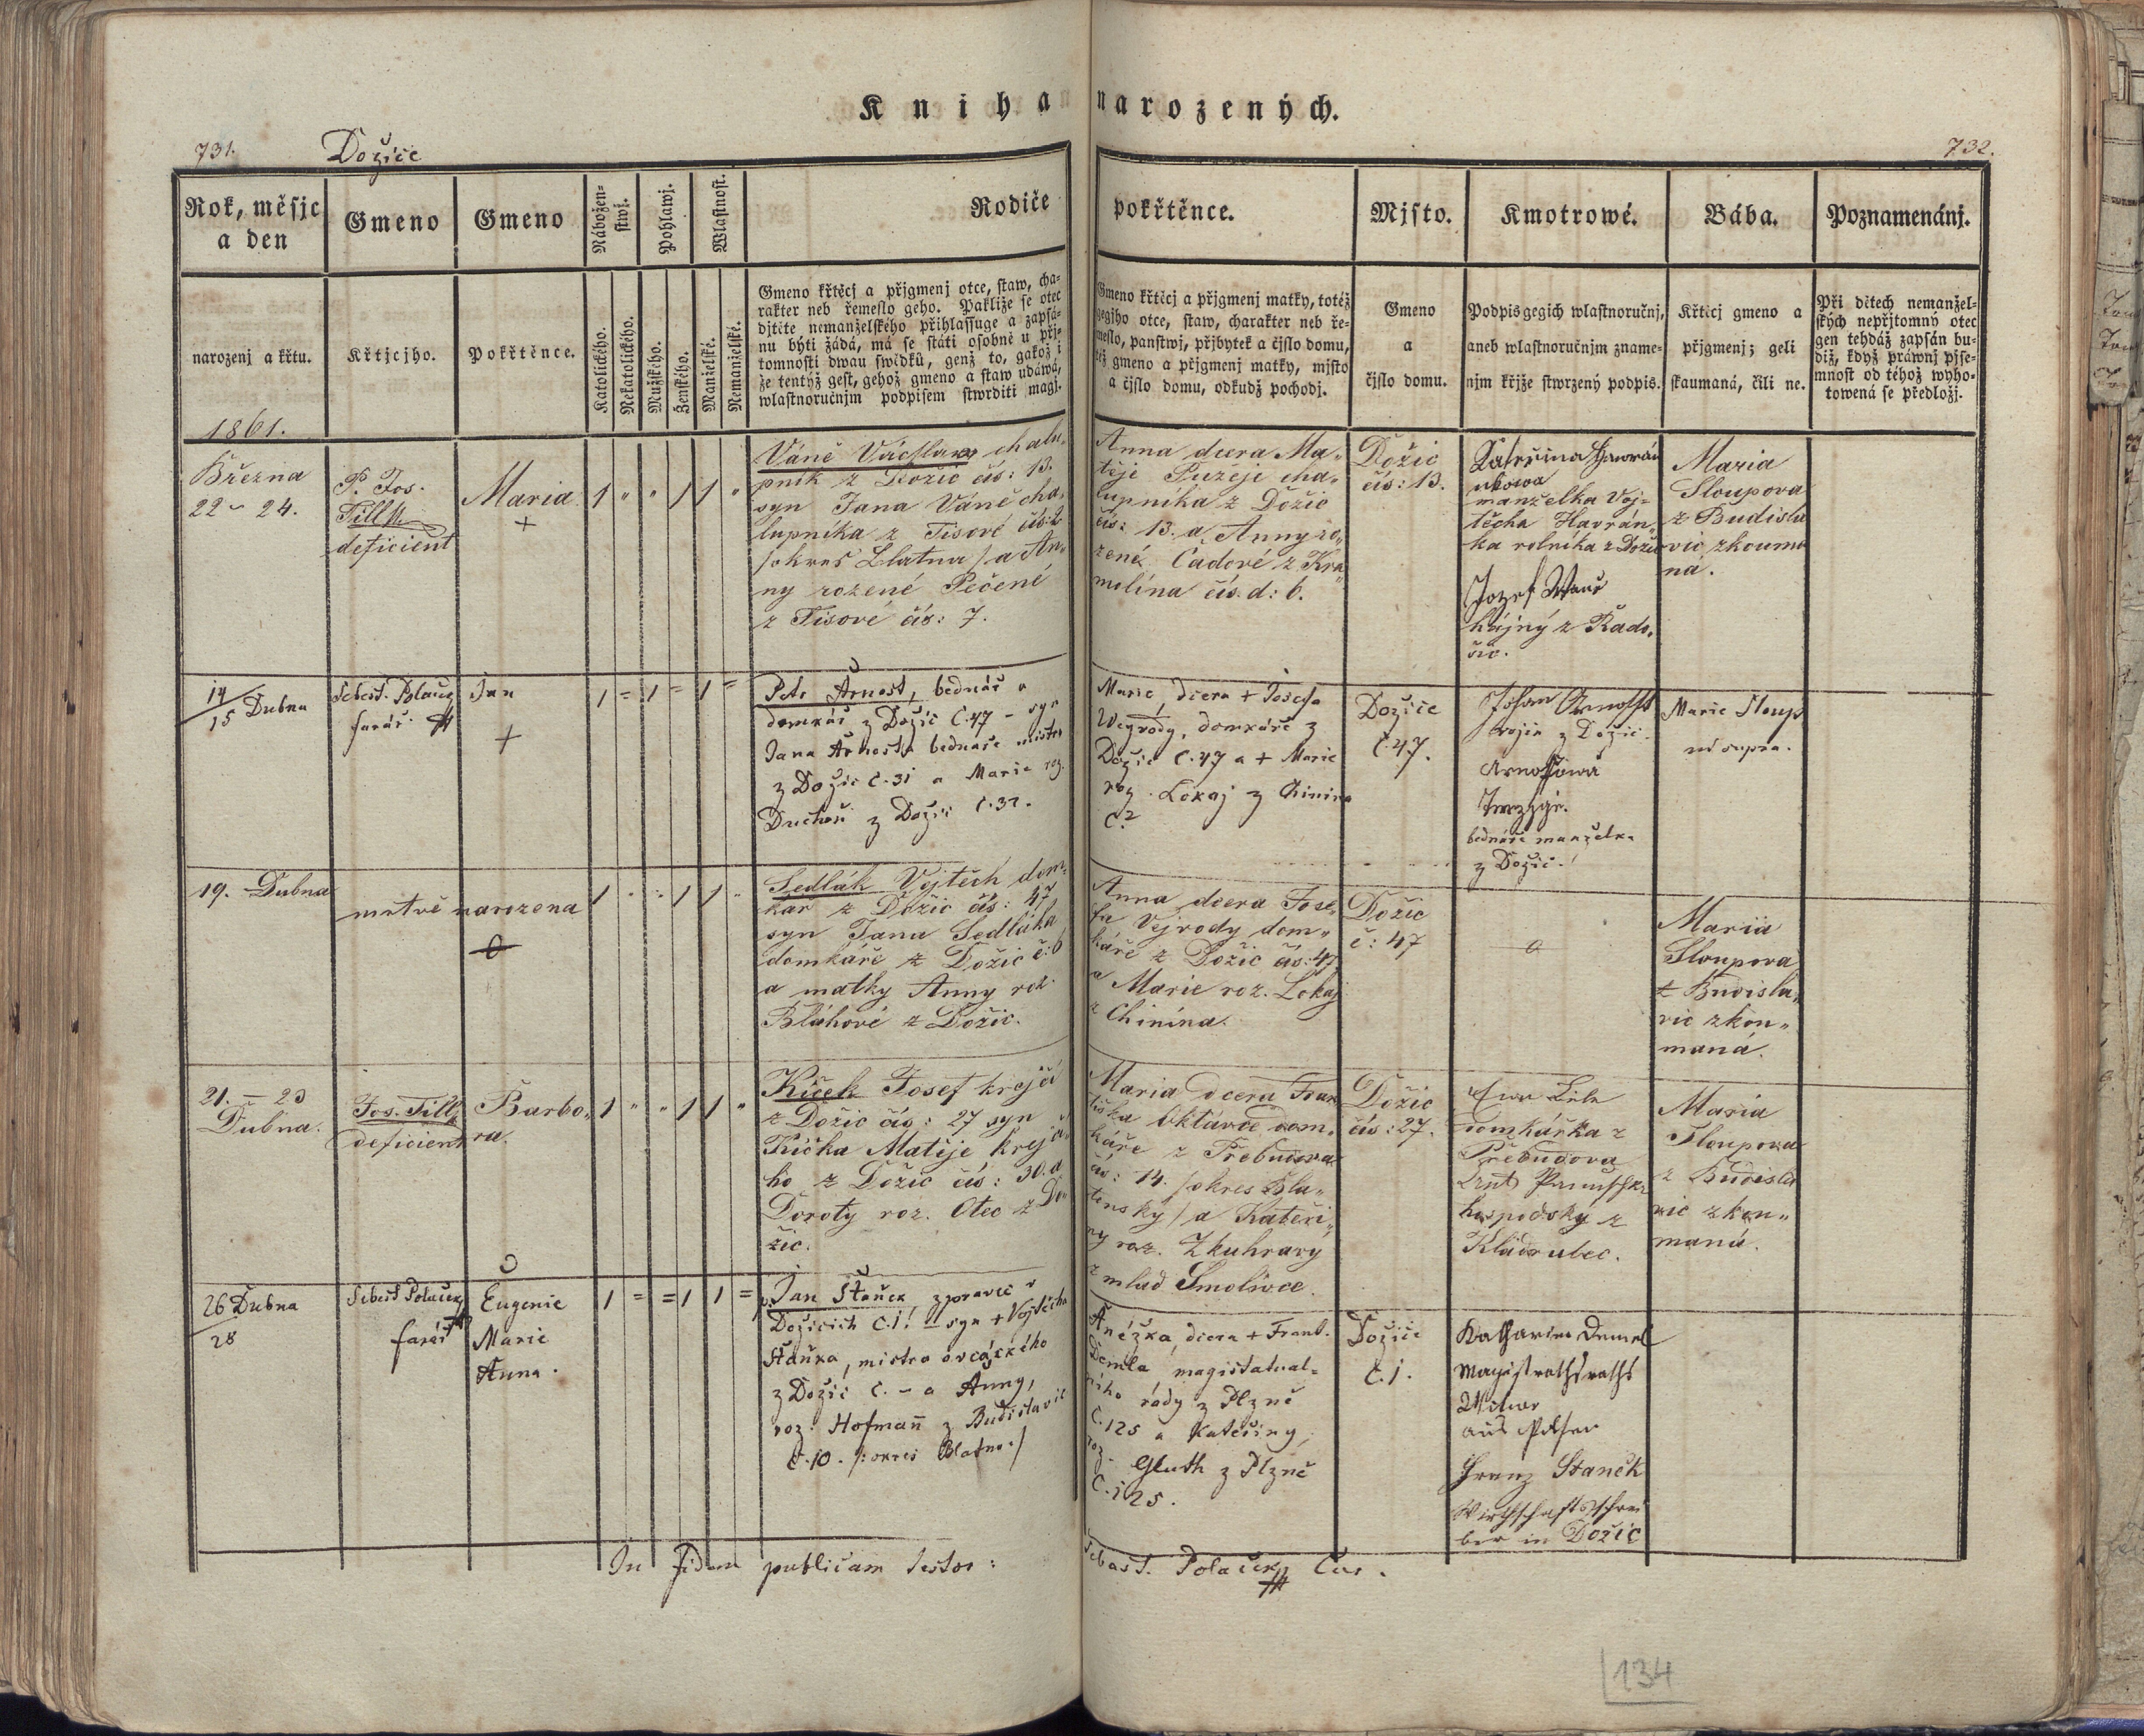 Kniha narozených.
731.
Dožice
732.
Rok, měsjc
a den
narozenj a křtu.
Gmeno
Křtjcjho.
Gmeno
Pokřtěnce.
Nábožen-
stwj.
Katolického.
Nekatolického.
Pohlawj.
Mužského.
Ženského.
Wlastnost.
Manželské.
Nemanželské.
Rodiče
Gmeno křtěcj a přjgmenj otce, staw, cha-
rakter neb řemeslo geho. Pakliže se otec
djtěte nemanželského přihlassuge a zapsá-
nu býti žádá, má se státi osobně u přj-
tomnosti dwau swědků, genž to, gakož i
že tentýž gest, gehož gmeno a staw udáwá,
wlastnoručnjm podpisem stwrditi magj.
pokřtěnce.
Gmeno křtěcj a přjgmenj matky, totéž
gegjho otce, staw, charakter neb ře-
meslo, panstwj, přjbytek a čjslo domu,
též gmeno a přjgmenj matky, mjsto
a čjslo domu, odkudž pochodj.
Mjsto.
Gmeno
a
čjslo domu.
Kmotrowé.
Podpis gegich wlastnoručnj,
aneb wlastnoručnjm zname-
njm křjže stwrzený podpis.
Bába.
Křtěcj gmeno a
přjgmenj; geli
skaumaná, čili ne.
Poznamenánj.
Při dětech nemanžel-
ských nepřjtomný otec
gen tehdáž zapsán bu-
diž, když práwnj pjse-
mnost od téhož wyho-
towená se předložj.
1861.
Března
22 - 24.
P. Jos.
Till
deficient
Maria
+
1 " " 1 1 "
Váně Václav chalu-
pník z Dožic čís: 13.
syn Jana Váně cha-
lupníka z Tisové čís: 2
/okres Blatna/ a An-
ny rozené Pečené
z Tisové čís: 7.
Anna dcera Ma-
těje Pužeje cha-
lupníka z Dožic
čís: 13. a Anny ro-
zené Cadové z Kra-
molína čís. d: 6.
Dožic
čís: 13.
manželka Voj-
těcha Havrán-
ka rolníka z Dožic
Jozef Waně
hájný z Rado-
šic.
Maria
Sloupova
z Budisla
vic zkouma
ná.
14/15 Dubna
Sebest. Polaček
farář
Jan
+
1 = 1 = 1 =
Petr Arnošt, bednář a
domkář z Dožic č. 47 - syn
Jana Arnošta bednáře mistra
z Dožic č. 31 a Marie roz.
Duchoň z Dožic č. 32.
Marie, dcera + Josefa
Wegrody, domkáře z
Dožic č. 47 a + Marie
roz. Lokaj z Chinina
č. 2
Dožice
č. 47.
Johan Arnosht
krejčí z Dožic.
Arnoštowa
bednáře manželka
z Dožic.
Marie Sloup
ut supra.
19. Dubna
mrtvě narozena
1 " " 1 1 "
Sedlák Vojtěch dom-
kář z Dožic čís: 47
syn Jana Sedláka
domkáře z Dožic č: 6
a matky Anny roz.
Bláhové z Dožic.
Anna dcera Jose-
fa Vejrody dom-
káře z Dožic čís: 47
a Marie roz. Lokaj
z Chinína.
Dožic
č: 47
Maria
Sloupova
z Budisla-
vic zkou-
maná.
21. - 23
Dubna.
Jos. Till
deficient
Barbo-
ra.
1 " " 1 1 "
Kíček Josef krejčí
z Dožic čís: 27 syn
Kíčka Matěje krejčí-
ho z Dožic čís: 30. a
Doroty roz. Otec z Do-
žic.
Maria dcera Fran
tiška Oktávce dom-
káře z Třebudova
čís: 14. /okres Bla-
tenský/ a Kateři-
ny roz. Zkuhravý
z mlad Smolivce.
Dožic
čís: 27.
domkářka z
Třebudova
hospodský z
Kládrubec.
Maria
Sloupova
z Budisla
vic zkou-
maná.
26 Dubna
28
Sebest Polaček
farář
Eugenie
Marie
Anna.
1 = = 1 1 =
Jan Staněk zpravce v
Dožicích č. 1. - syn + Vojtěcha
Staňka, mistra ovčáckého
z Dožic č. - a Anny,
roz. Hofmann z Budislavic
č. 10. /: okres Blatna :/
Anežka, dcera + Frant.
Demla, magistratual-
ního rády z Plzně
č. 125 a Kateřiny,
roz. Gluth z Plzně
č. 125.
Dožice
č. 1.
Katharina Deml
Magistrathsraths
Witwer
aus Pilsen
Franz Staněk
Wirthschaftsschrei
ber in Dožic
In fidem publicam testor:
Sebast. Polaček Cur.
134